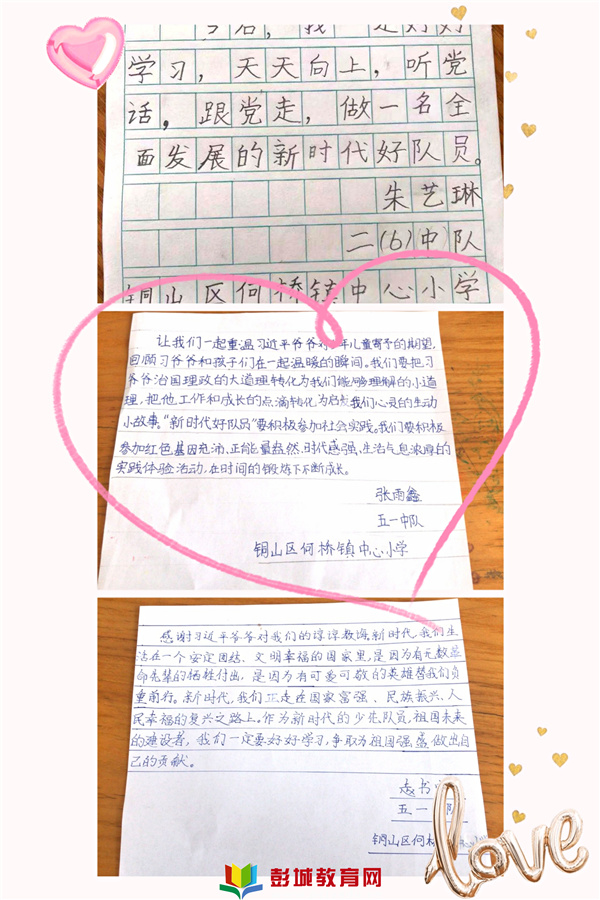 今后，我 是好好
学习，天天向上，听党
话，跟党走，做一名全
面发展的新时代好队员。
朱艺琳
二(6)中队
铜山区何桥镇中心小学
让我们一起重温习近平爷爷对 年儿童寄予的期望，
回顾习爷爷和孩子们在一起温暖的瞬间。我们要把习
爷爷治国理政的大道理转化为我们能够理解的小道
理，把他工作和成长的点滴转化为启 我们心灵的生动
小故事。“新时代好队员”要积极参加社会实践。我们要积极
参加红色基因充沛、正能量盎然、时代感强、生活气息浓厚的
实践体验活动，在时间的锻炼下不断成长。
张雨鑫
五一中队
铜山区何桥镇中心小学
感谢习近平爷爷对我们的谆谆教诲，新时代，我们生
活在一个安定团结、文明幸福的国家里，是因为有无数革
命先辈的牺牲付出，是因为有可爱可敬的英雄替我们负
重前行。新时代，我们正走在国家富强、民族振兴、人
民幸福的复兴之路上。作为新时代的少先队员，祖国未来
的建设者，我们一定要好好学习，争取为祖国强盛做出自
己的贡献。
书
五一 队
铜山区何桥
love
彭城教育网